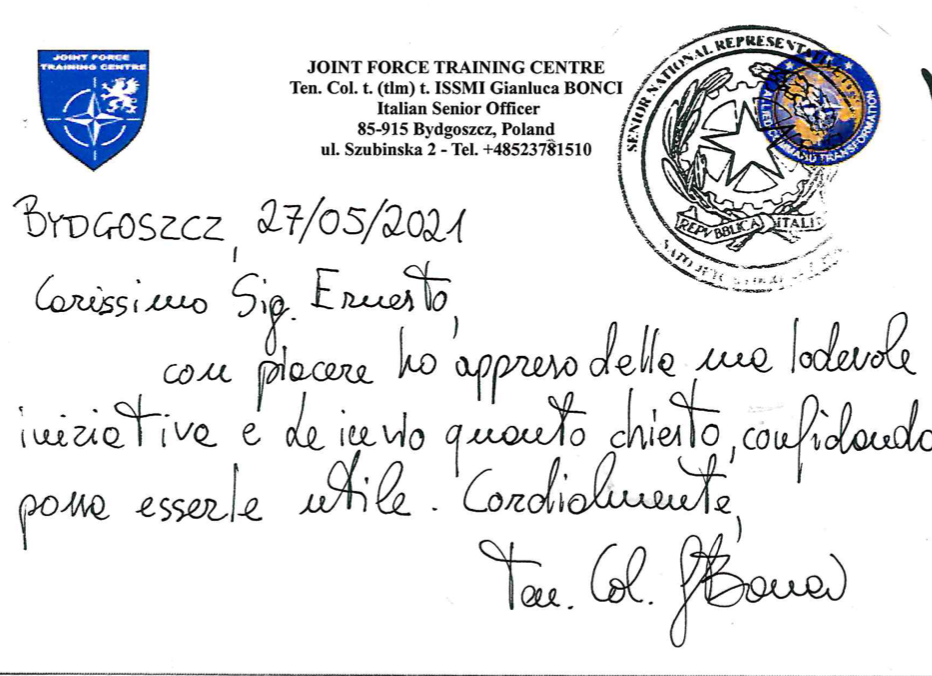 JOINT FORCE
TRAINING CENTRE
JOINT FORCE TRAINING CENTRE
Ten. Col. t. (tlm) t. ISSMI Gianluca BONCI
Italian Senior Officer
85-915 Bydgoszcz, Poland
ul. Szubinska 2 - Tel. +48523781510
SENIOR NATIONAL REPRESENTATI
REPVBBLICA ITALI
ALLIED COMMAND TRANSFORMATION
BYDGOSZCZ, 27/05/2021
Carissimo Sig. Ernesto,
con piacere ho appreso della sua lodevole
iniziativa e Le invio quanto chiesto, confidando
possa esserle utile. Cordialmente,
Ten. Col. G Bonci